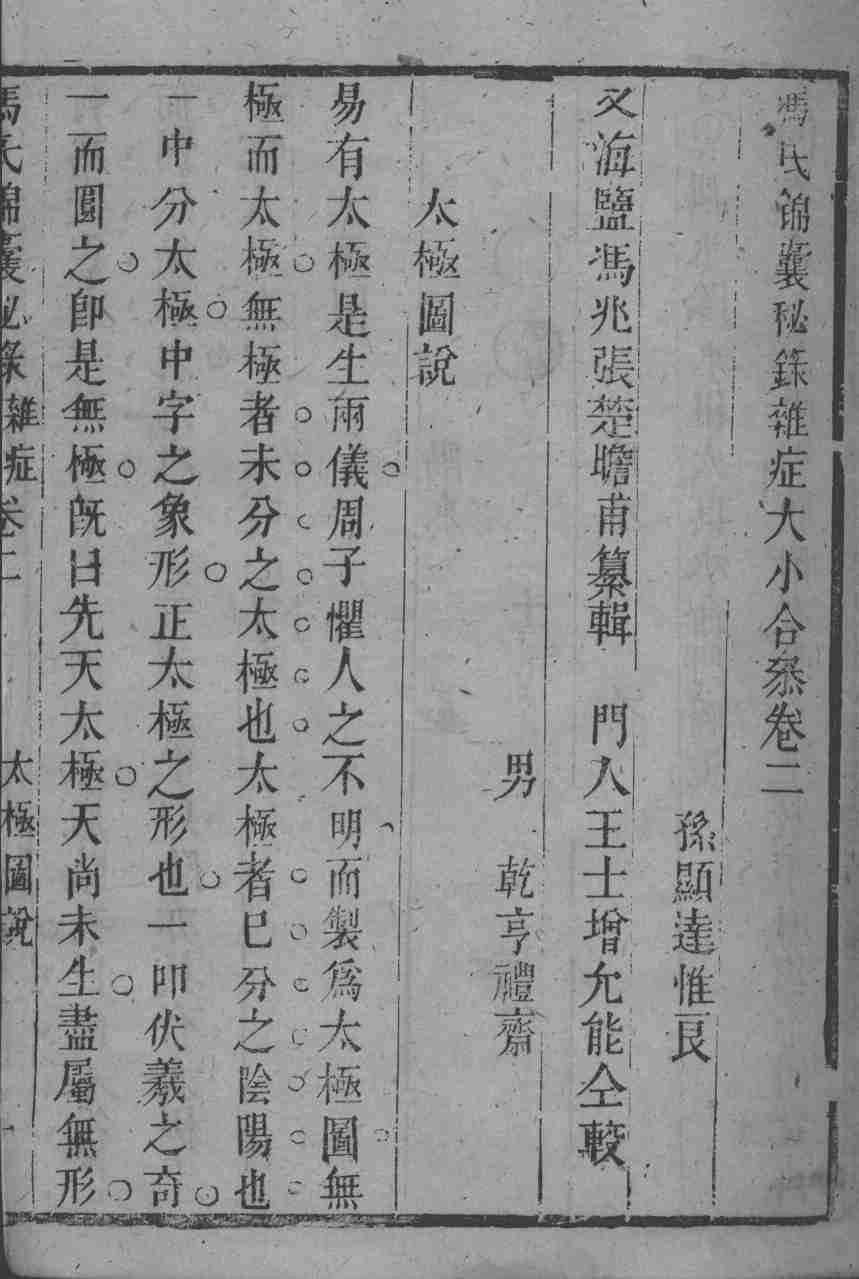 馮氏錦囊秘錄雜症大小合叅卷二
孫顯達惟良
海鹽馮兆張楚瞻甫纂輯 門人王士增允能仝較
男 乾亨禮齋
太極圖說
易有太極是生兩儀周子懼人之不明而製爲太極圖無
極而太極無極者未分之太極也太極者已分之陰陽也
一中分太極中字之象形正太極之形也一卽伏羲之奇
一而圓之卽是無極旣曰先天太極天尚未生盡屬無形
馮氏錦囊秘錄雜症卷二 太極圖說 一